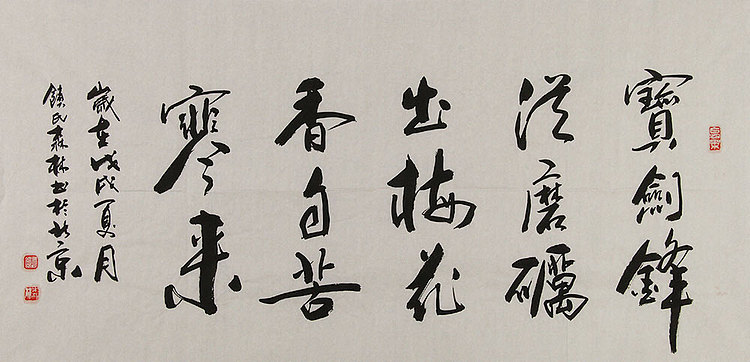 寶劍鋒
從磨礪
出梅花
香自苦
寒来
歲在戊戌夏月
氏森林书於北京